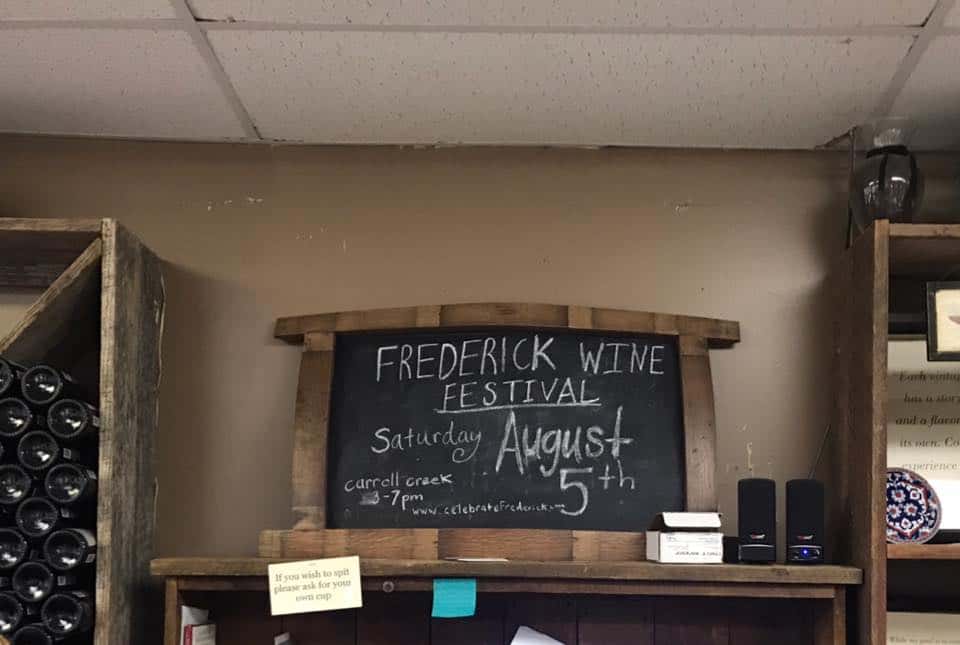 FREDERICK WINE
FESTIVAL
Saturday August
5th
carroll creek
3-7pm
www.celebratefrederick.com
If you wish to spit
please ask for your
own cup
Each vintage
has a story
and a flavor
its own. Co
experience